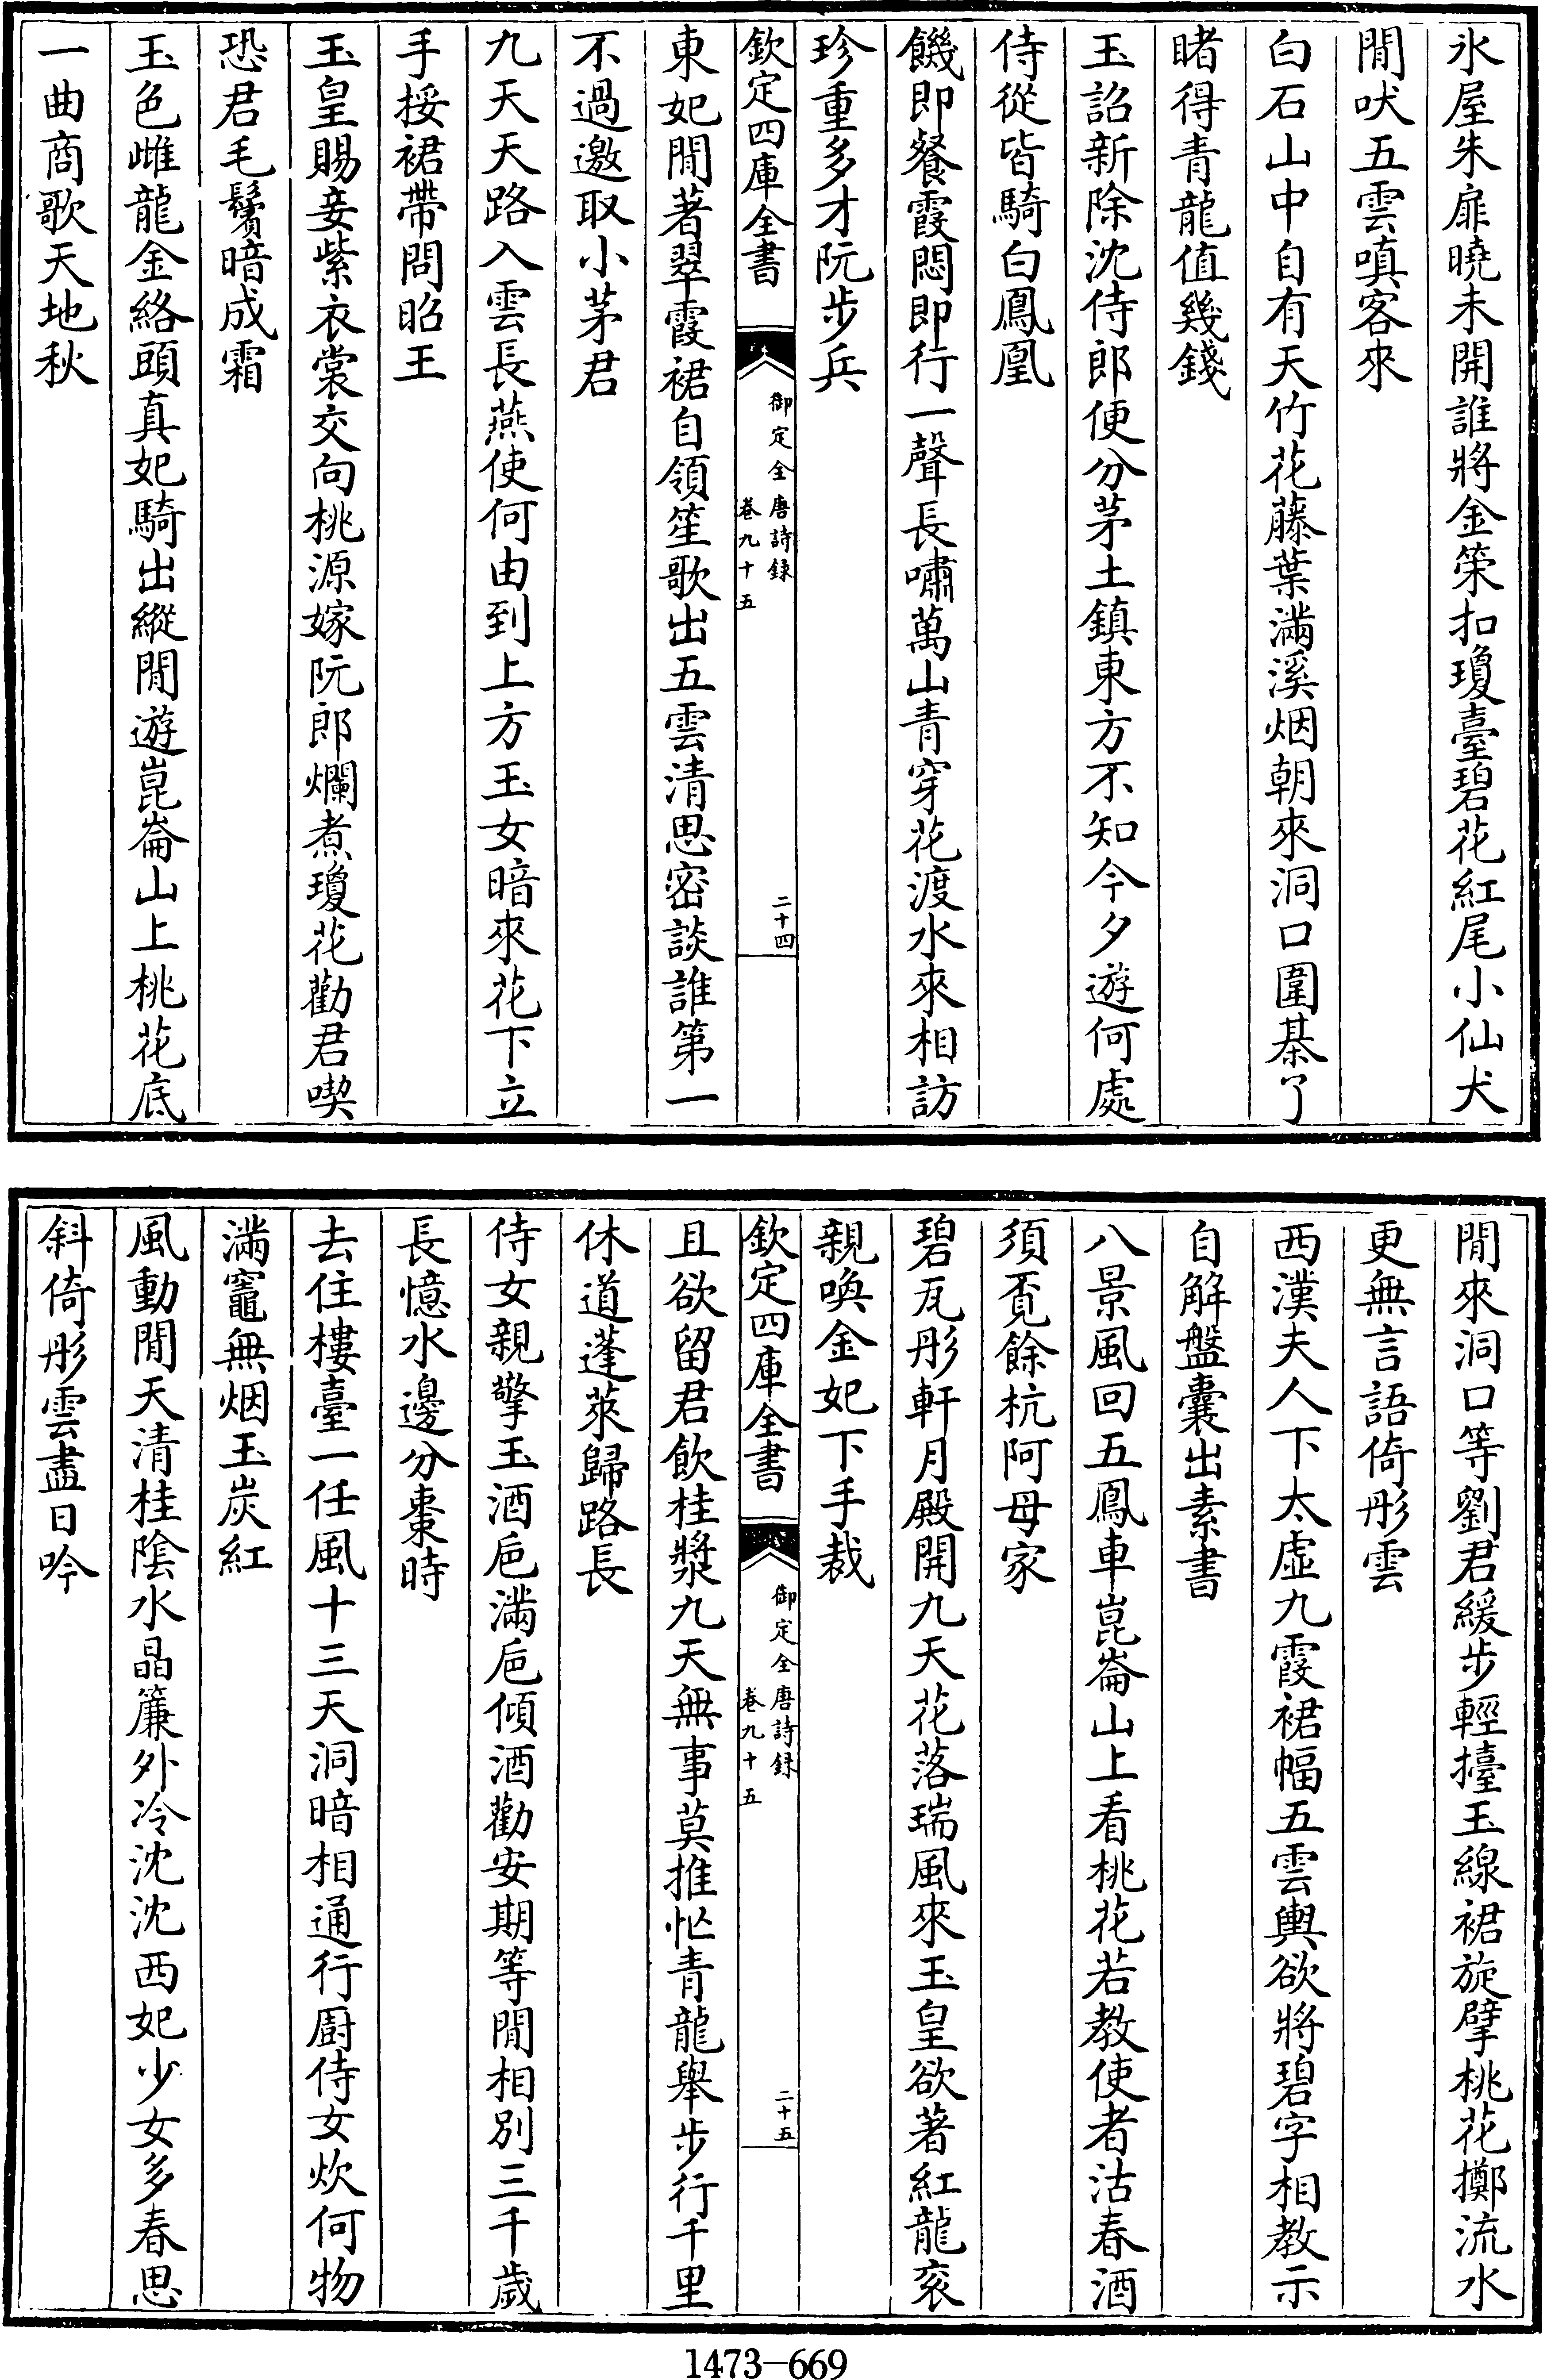 氷屋朱扉曉未開誰將金策扣瓊臺碧花紅尾小仙犬
閒吠五雲嗔客來
白石山中自有天竹花藤葉滿溪烟朝來洞口圍棊了
睹得青龍值幾錢
玉詔新除沈侍郎便分茅土鎮東方不知今夕遊何處
侍從皆騎白鳳凰
饑即餐霞悶即行一聲長嘯萬山青穿花渡水來相訪
珍重多才阮步兵
欽定四庫全書
御定全唐詩録
卷九十五
二十四
東妃閒著翠霞裙自領笙歌出五雲清思密談誰第一
不過邀取小茅君
九天天路入雲長燕使何由到上方玉女暗來花下立
手挼裙帶問昭王
玉皇賜妾紫衣裳交向桃源嫁阮郎爛煮瓊花勸君喫
恐君毛鬢暗成霜
玉色雌龍金絡頭真妃騎出縱閒遊崑崙山上桃花底
一曲商歌天地秋
閒來洞口等劉君緩步輕擡玉線裙旋擘桃花擲流水
更無言語倚彤雲
西漢夫人下太虛九霞裙幅五雲輿欲將碧字相教示
自解盤囊出素書
八景風回五鳳車崑崙山上看桃花若教使者沽春酒
須覔餘杭阿母家
碧瓦彤軒月殿開九天花落瑞風來玉皇欲著紅龍衮
親喚金妃下手裁
欽定四庫全書
御定全唐詩録
卷九十五
二十五
且欲留君飲桂漿九天無事莫推忙青龍舉步行千里
休道蓬萊歸路長
侍女親擎玉酒巵滿巵傾酒勸安期等閒相別三千歲
長憶水邊分棗時
去住樓臺一任風十三天洞暗相通行厨侍女炊何物
滿竈無烟玉炭紅
風動閒天清桂陰水晶簾外冷沈沈西妃少女多春思
斜倚彤雲盡日吟
1473-669